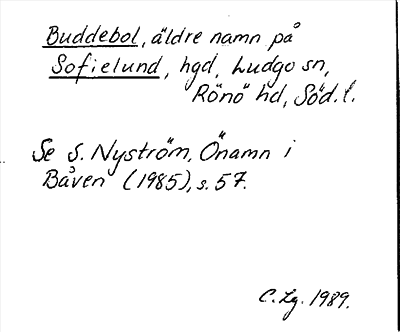 Buddebol, äldre namn på
Sofielund, hgd, Ludgo sn,
Rönö hd, Söd. l.
Se S. Nyström, Önamn i
Båven (1985), s. 57.
C. Lg. 1989.